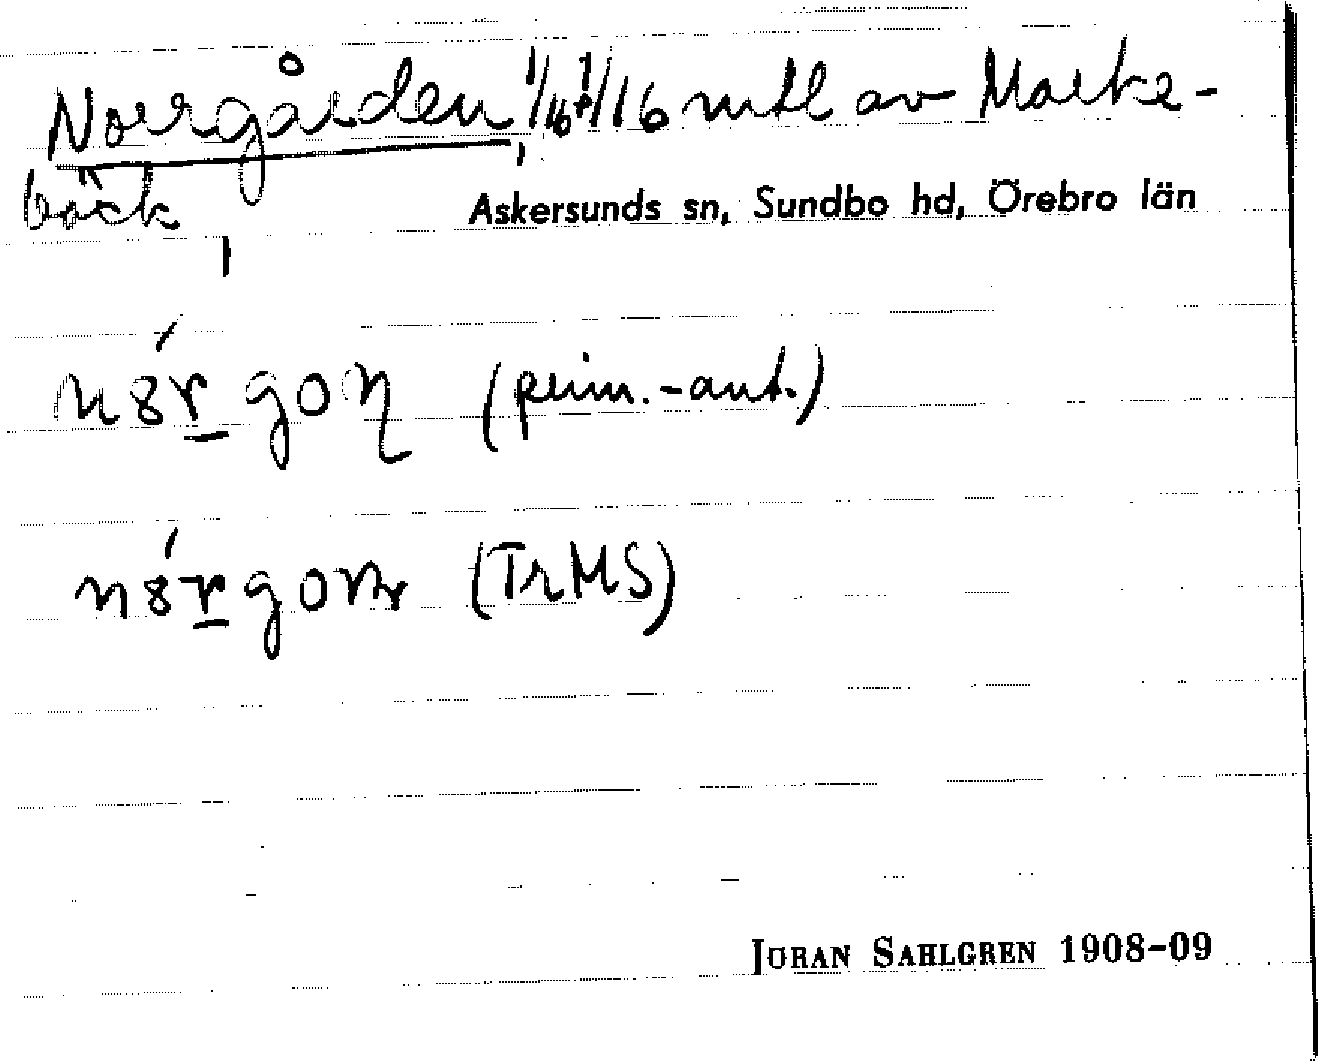 Norrgården, 1/16+1/16 mtl av Marke-
bäck,
Askersunds sn, Sundbo hd, Örebro län
nȣ́r̲goɳ (prim.-ant.)
nȣ́r̲gonr (TrMS)
JÖRAN SAHLGREN 1908-09